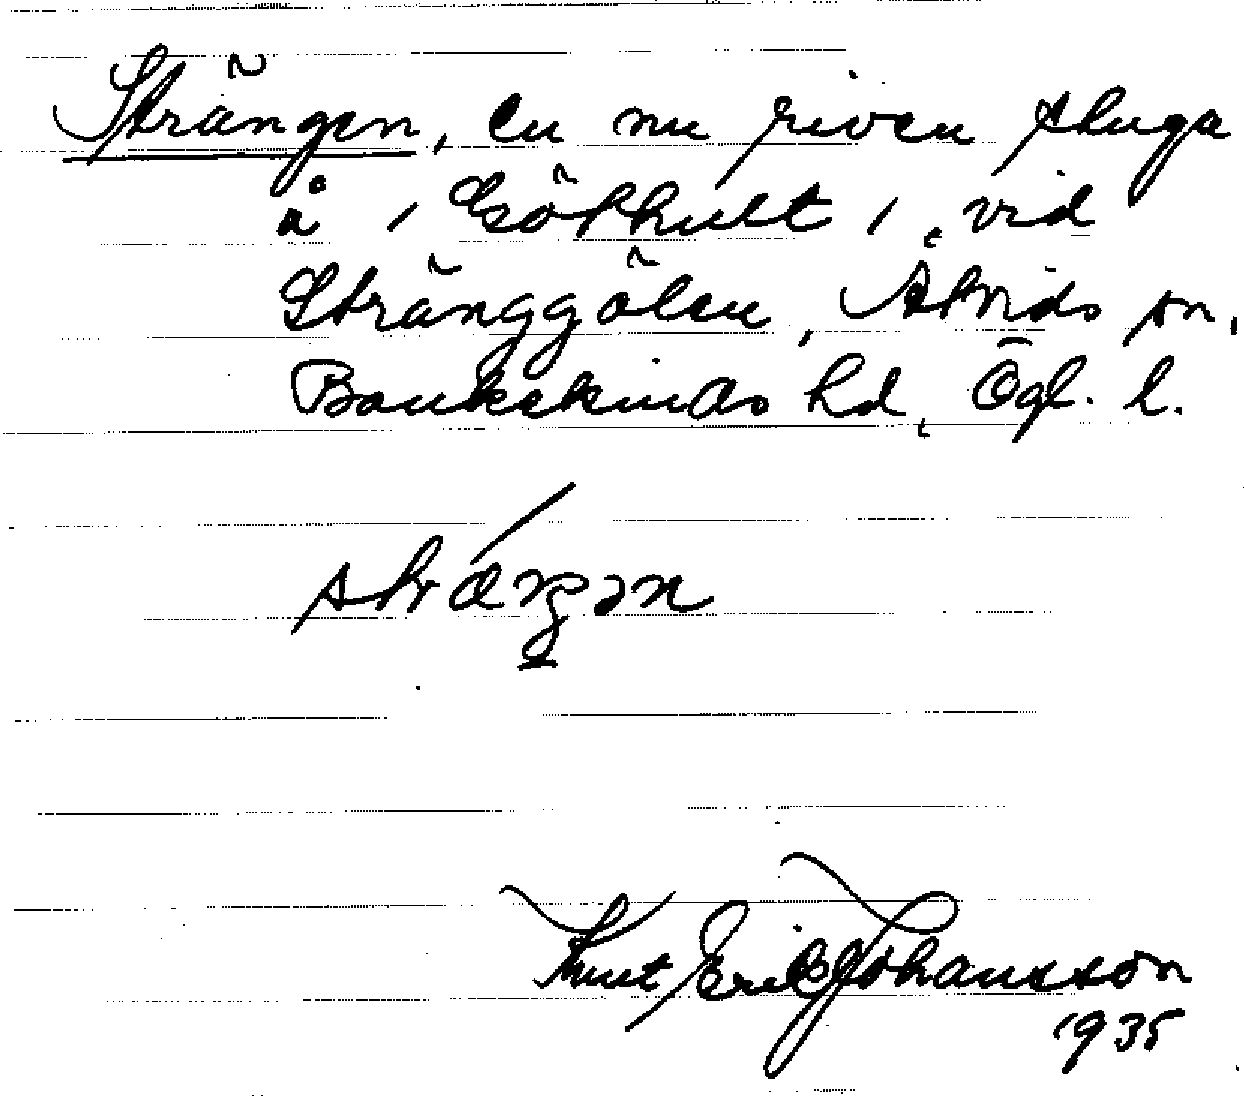 Strängen, en nu riven stuga
å / Gökhult /, vid
Stränggölen, Åtvids sn,
Bankekinds hd, Ögl. l.
Knut Erik Johansson
1935